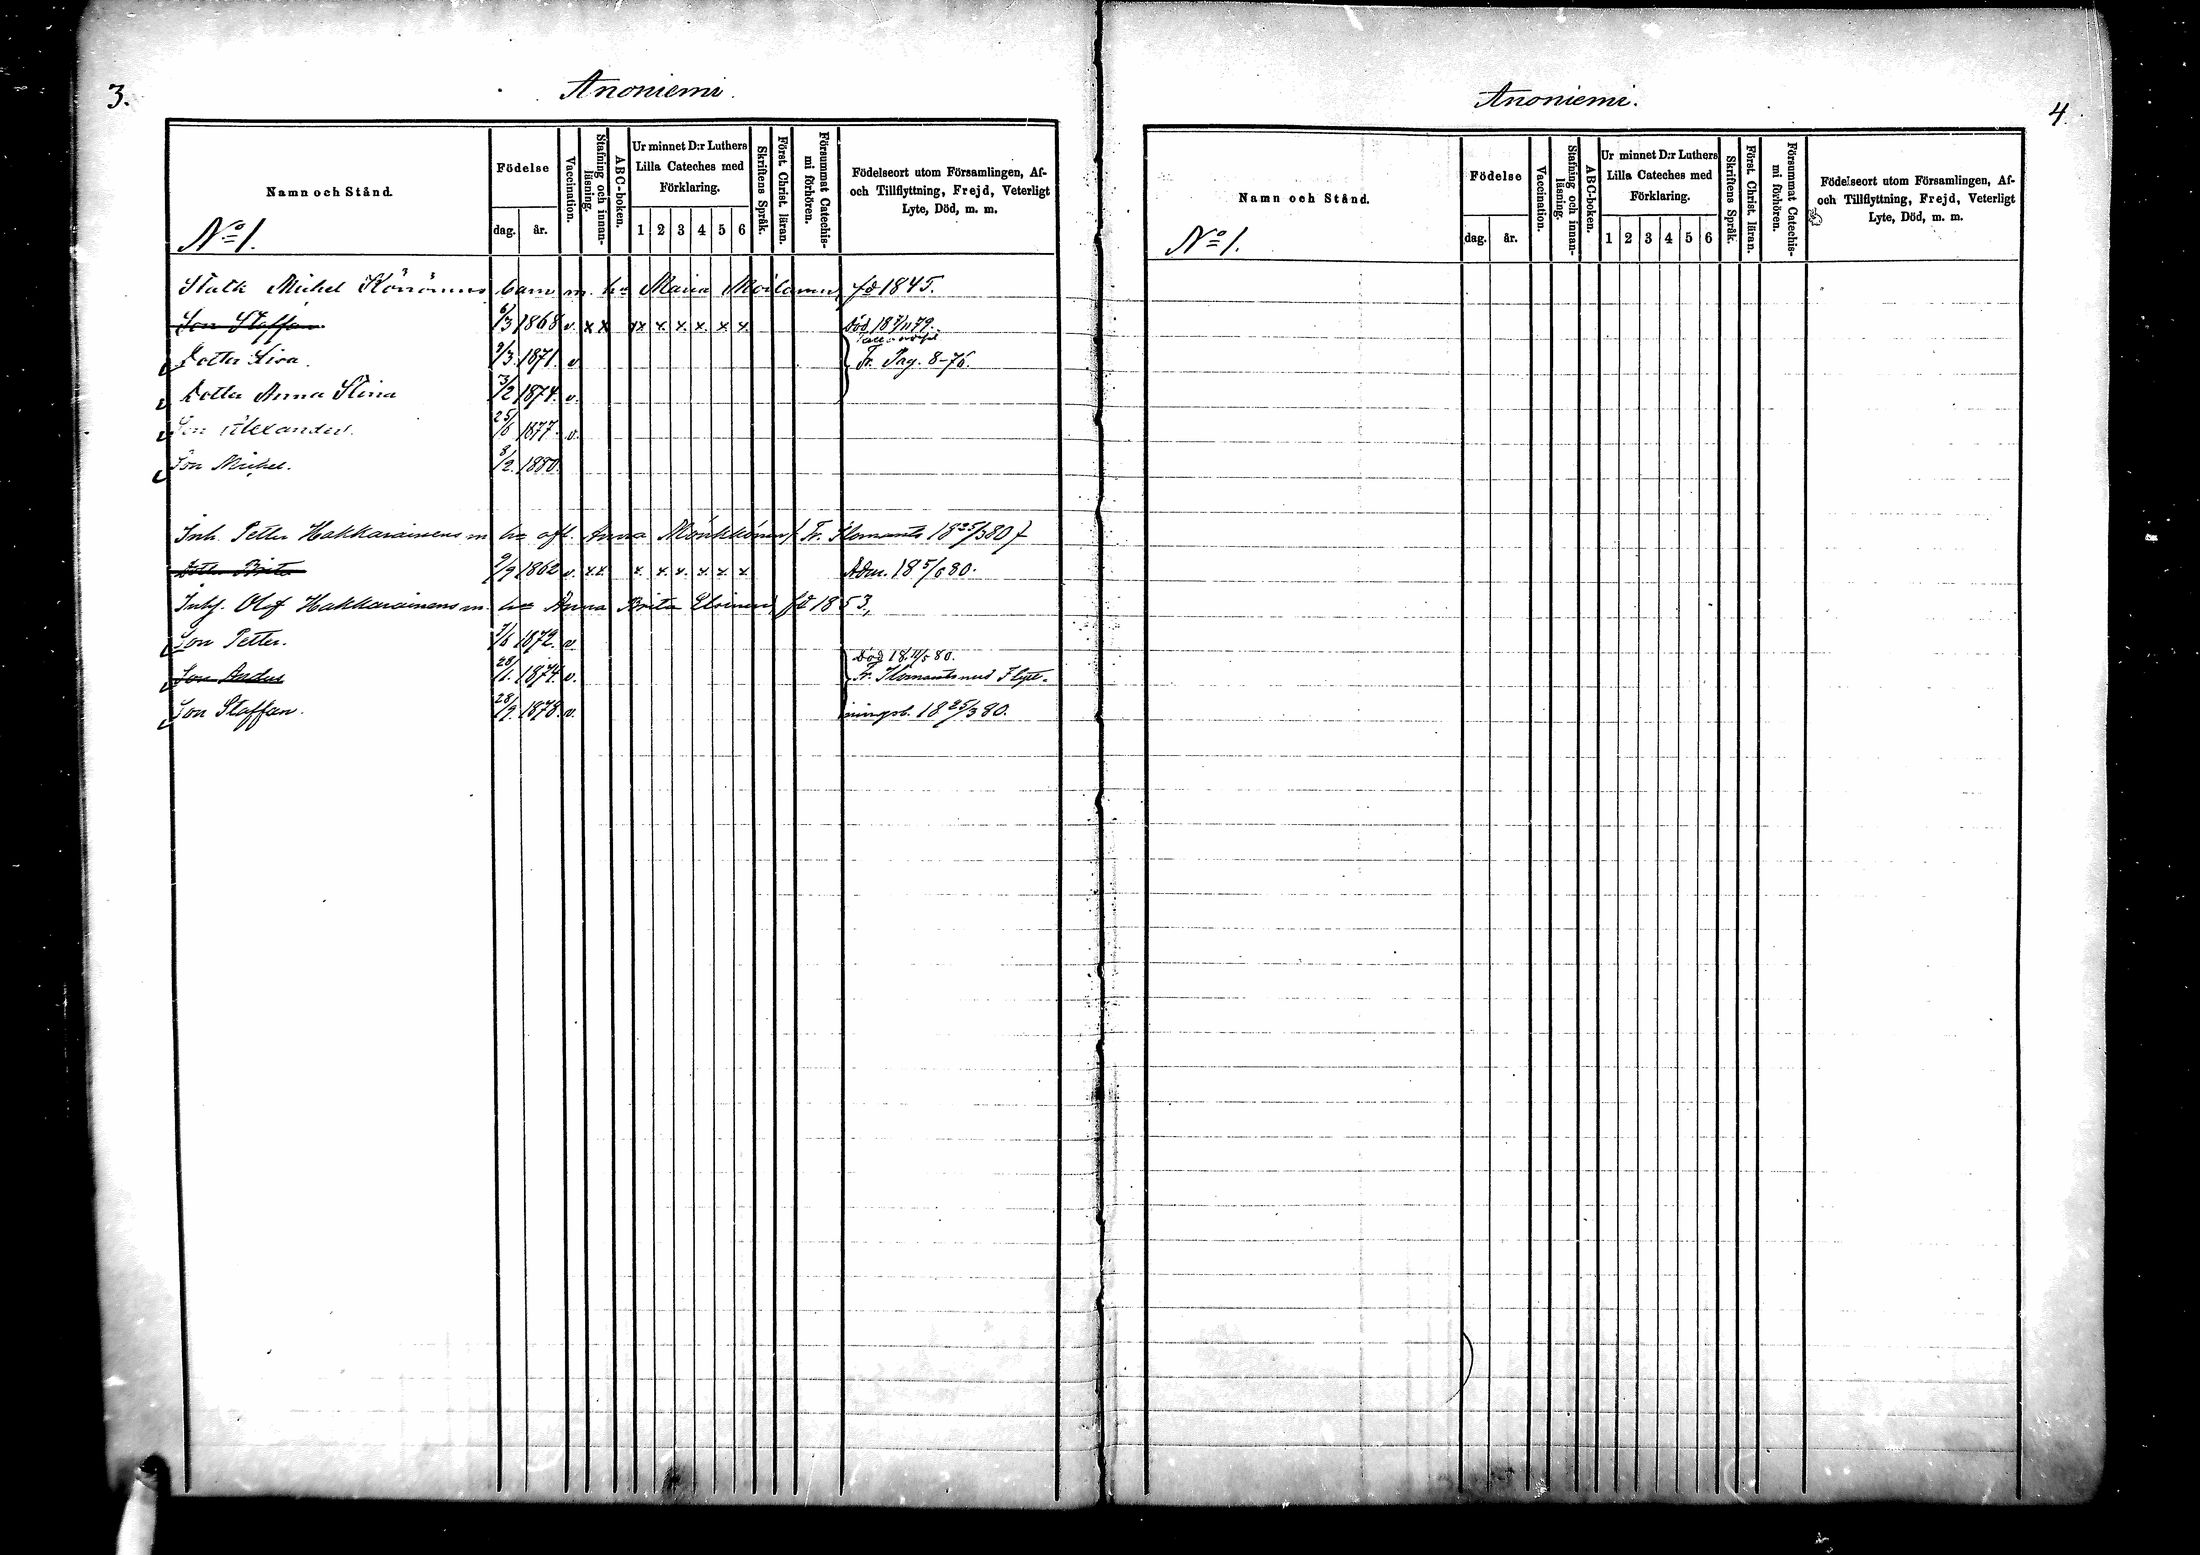 3.
Anoniemi.
Namn och Stånd.
Födelse
dag. år.
Vaccination.
Stafning och innanläsning.
ABC-boken.
Ur minnet D:r Luthers Lilla Cateches med Förklaring.
1 2 3 4 5 6
Skriftens Språk.
Först. Christ. läran.
Försummat Catechismi förhören.
Födelseort utom Församlingen, Af- och Tillflyttning, Frejd, Veterligt Lyte, Död, m. m.
No 1.
Michel barn m. h. Maria fd 1845.
Son Staffan 6/3 1868 v. x x x x x x x x Död 79.
Dotter Lisa. 9/3 1871. v. Fr. Pag. 8-
Dotter Anna Stina 3/2 1874. v.
Son Alexander. 25/6 1877. v.
Son Michel. 8/2. 1880.
Inh. Petter Hakkarainens m h. afl. Anna Mönkkönen f. Fr. Ilomants 18 25/3 80
Dott. Brita 9/9 1862 v. x x x. x. x. x. x. x. Adm. 18 5/6 80.
Inh. Olof Hakkarainens m. h. Anna Brita fd 1853,
Son Petter. 7/6 1872. v.
Död 80.
Son Anders 28/1. 1874. v. Fr. Ilomants med Flytt-
Son Staffan. 28/9. 1878. v. ningsb. 18 25/3 80.
4.
Anoniemi.
Namn och Stånd.
Födelse
dag. år.
Vaccination.
Stafning och innanläsning.
ABC-boken.
Ur minnet D:r Luthers Lilla Cateches med Förklaring.
1 2 3 4 5 6
Skriftens Språk.
Först. Christ. läran.
Försummat Catechismi förhören.
Födelseort utom Församlingen, Af- och Tillflyttning, Frejd, Veterligt Lyte, Död, m. m.
No 1.